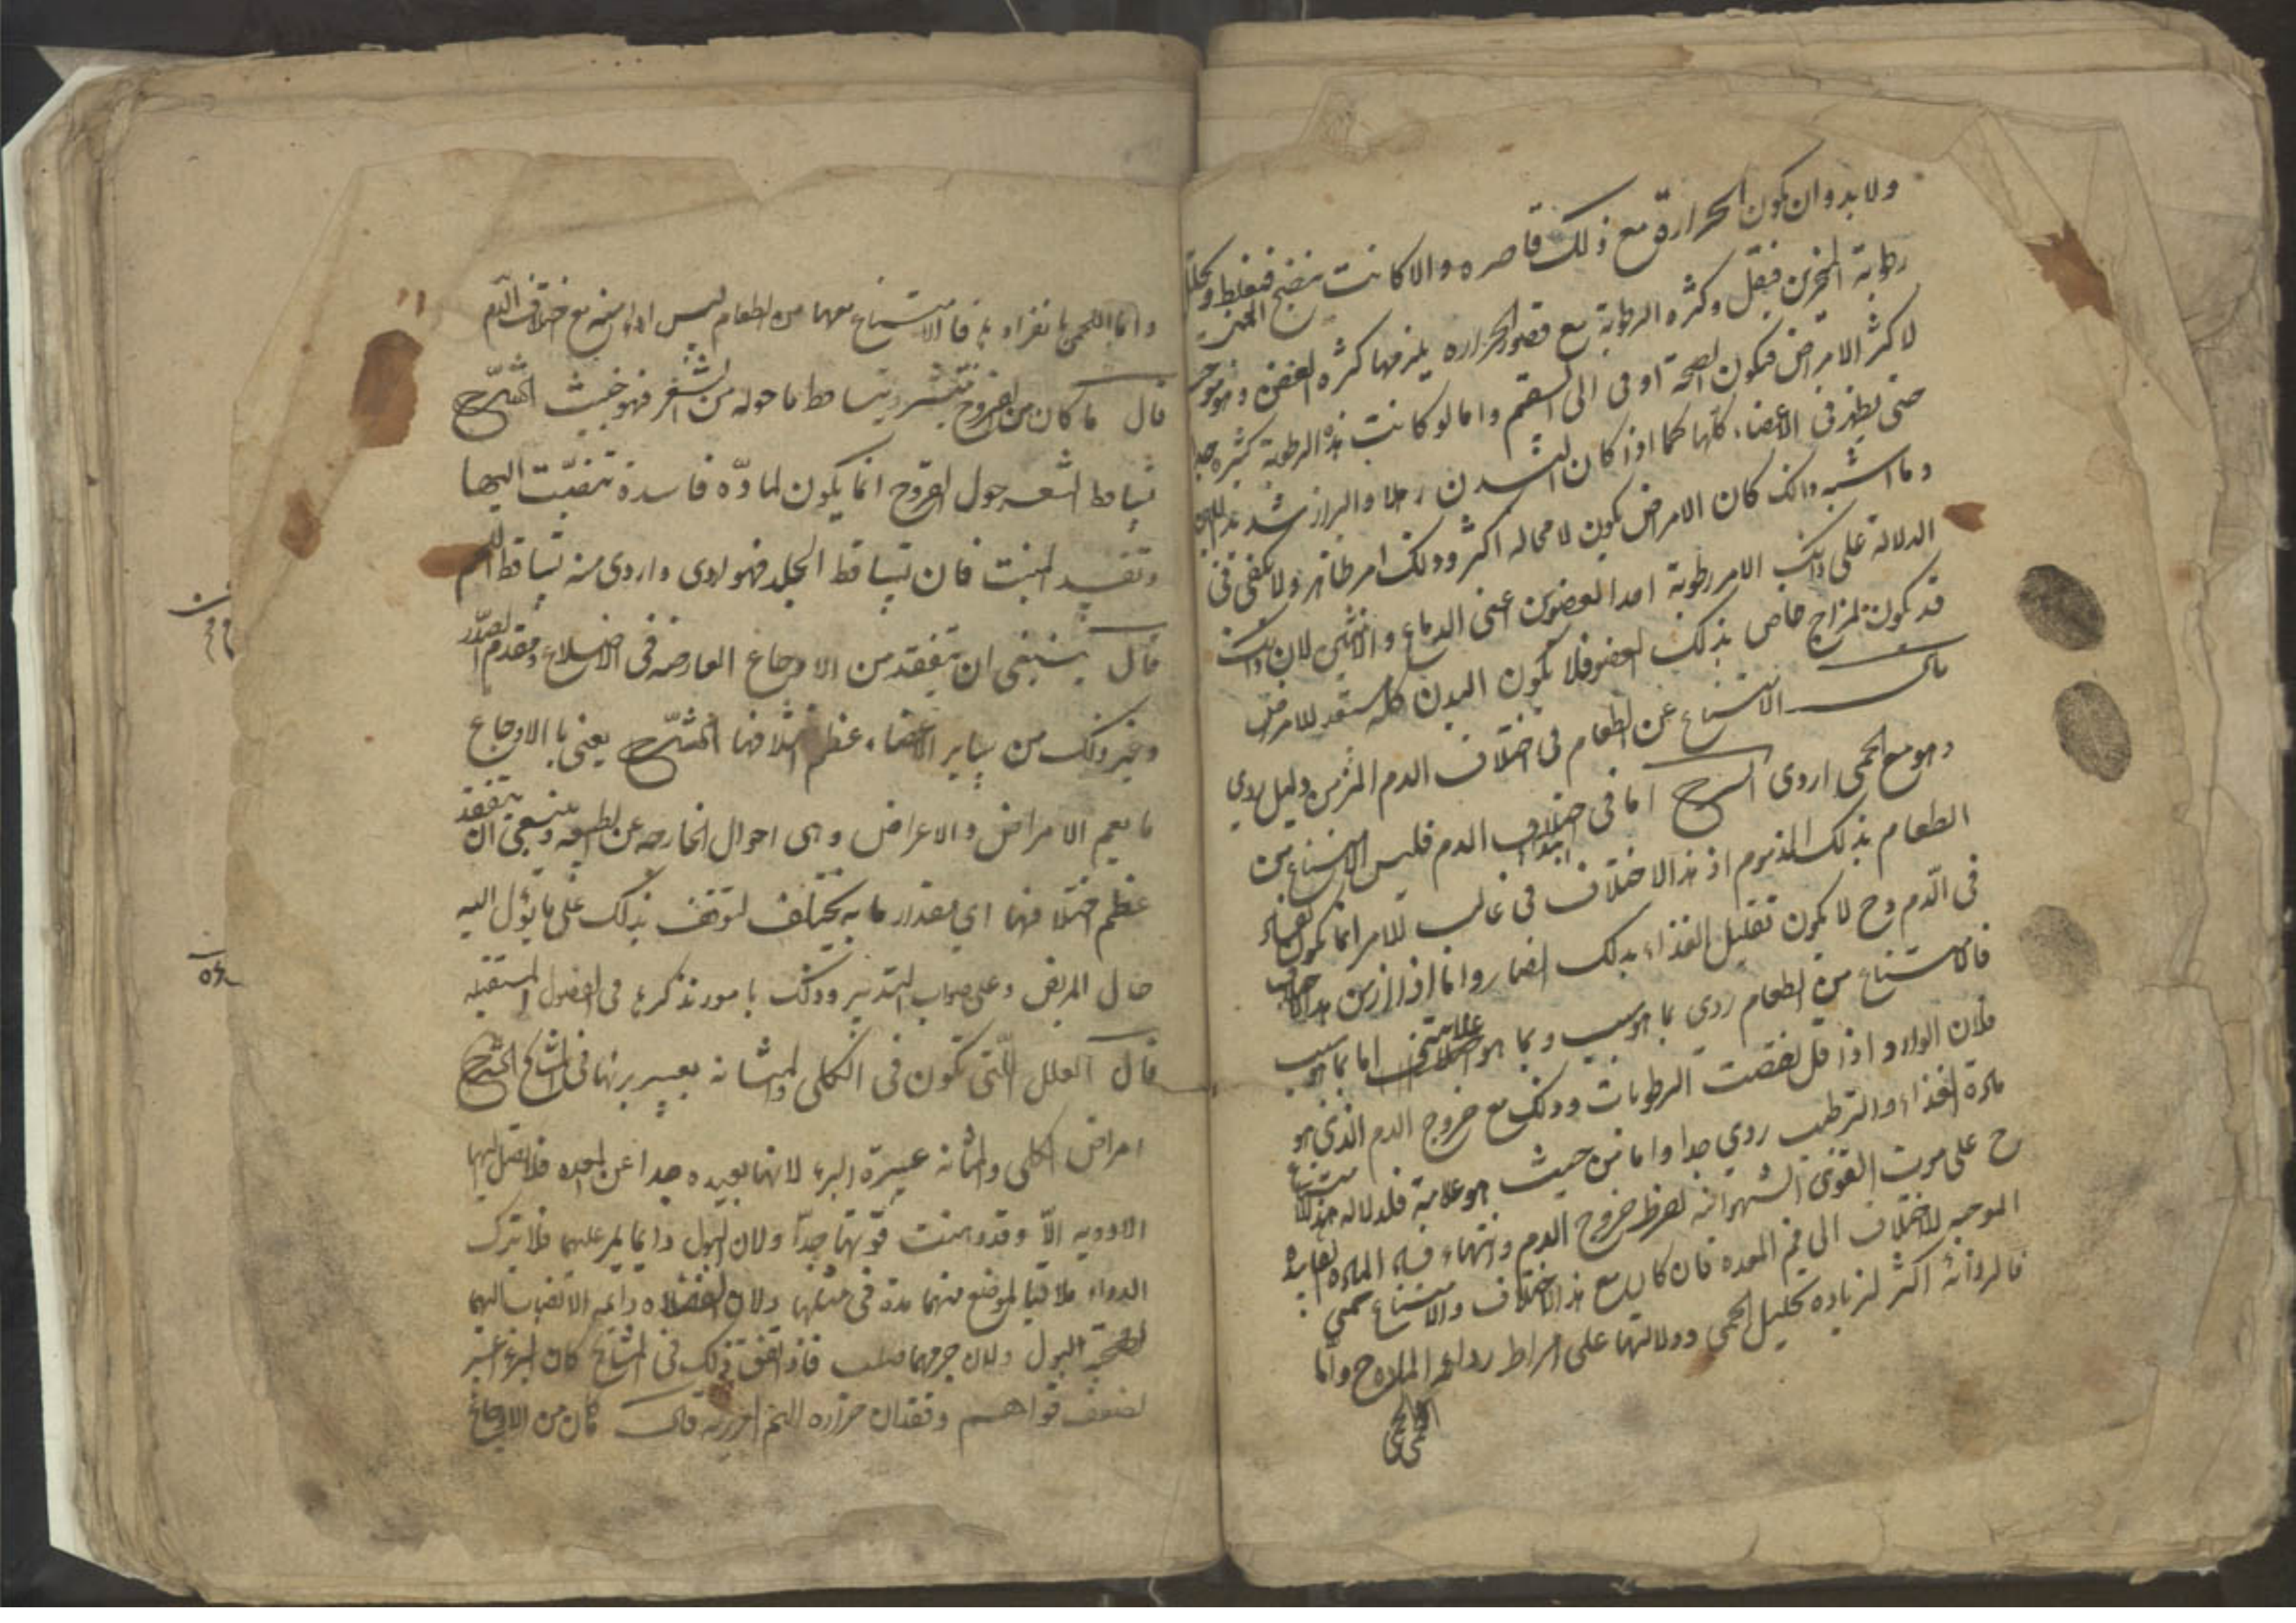 ولا بد وان يكون الحرارة مع ذلك قاصره والا كانت تنضج فتغلظ وتحلل
رطوبة المنخرين فيقل وكثره الرطوبة مع قصور الحراره يلزمها كثره العفن وهو موجب
لاكثر الامراض فيكون الصحة اوفى الى السقم واما لو كانت هذه الرطوبة كثيره جدا
حتى يظهر فى الاعضاء كلها كما اذا كان البدن رهلا والبراز شديد اللين
وما اشبه ذلك كان الامراض يكون لا محاله اكثر وذلك امر ظاهر ولا يكفى فى
الدلالة على ذلك الامر رطوبة احد العضوين اعنى الدماغ والانثيين لان ذلك
قد يكون لمزاج خاص بذلك العضو فلا يكون البدن كله مستعد للامراض
قال الامتناع عن الطعام فى اختلاف الدم المزمن دليل ردي
وهو مع الحمى اردى الشرح اما فى ابتداء اختلاف الدم فليس الامتناع من
الطعام بذلك المذموم اذ هذا الاختلاف فى غالب الامر انما يكون
فى الدم وح لا يكون تقليل الغذاء بذلك الضار واما اذا ازمن هذا الاختلاف
فالامتناع من الطعام ردي بما هو سبب وبما هو علامة اما بما هو سبب
فلان الوارد اذا قل نقصت الرطوبات وذلك مع خروج الدم الذى هو
مادة الغذاء والترطيب ردي جدا واما من حيث هو علامة فلدلاله هذا الامتناع
ح على موت القوى الشهوانيه لفرط خروج الدم وانتهاء فساد الماده
الموجبه للاختلاف الى فم المعده فان كان مع هذا الاختلاف والامتناع حمى
فالرداءة اكثر لزياده تحليل الحمى ودلالتها على افراط رداءة المزاج واما
الحمى
واما الحمى بانفرادها فالامتناع معها من الطعام ليس اردأ منه مع اختلاف الدم
قال ما كان من القروح ينتشر ويتساقط ما حوله من الشعر فهو خبيث الشرح
تساقط الشعر حول القروح انما يكون لمادة فاسدة تنصبت اليها
وتفسد المنبت فان تساقط الجلد فهو اردى واردى منه تساقط اللحم
قال ينبغى ان يتفقد من الاوجاع العارضه فى الاضلاع ومقدم الصدر
وغير ذلك من ساير الاعضاء عظم اختلافها الشرح يعنى بالاوجاع
ما يعم الامراض والاعراض وهى احوال الخارجه عن الطبيعه وينبغى ان يتفقد
عظم اختلافها اي مقدار ما به يختلف لتوقف بذلك على ما يؤل اليه
حال المريض وعلى صواب التدبير وذلك بامور نذكرها فى الفصول المستقبله
قال العلل التى تكون فى الكلى والمثانه يعسر برئها فى المشايخ الشرح
امراض الكلى والمثانه عسرة البرء لانها بعيده جدا عن المعده فلا تصل اليها
الادويه الا وقد وهنت قوتها جدا ولان البول دائما يمر عليها فلا يترك
الدواء ملاقيا لموضع منهما مدة فى مثلها ولان الفضلات دائمه الانصباب اليهما
لصحبة البول ولان جرمهما صلب فاذا اتفق ذلك فى المشايخ كان البرء اعسر
لضعف قواهم وفقدان حراره اللحم الغريزيه قال ما كان من الاوجاع